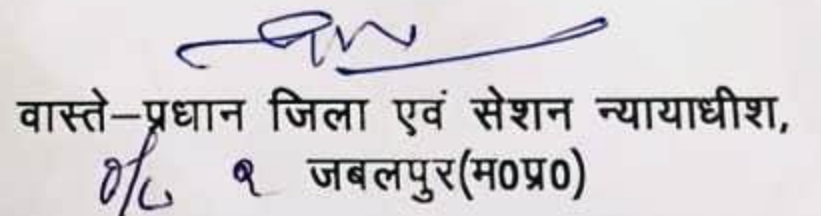 वास्ते–प्रधान जिला एवं सेशन न्यायाधीश,
जबलपुर(म0प्र0)